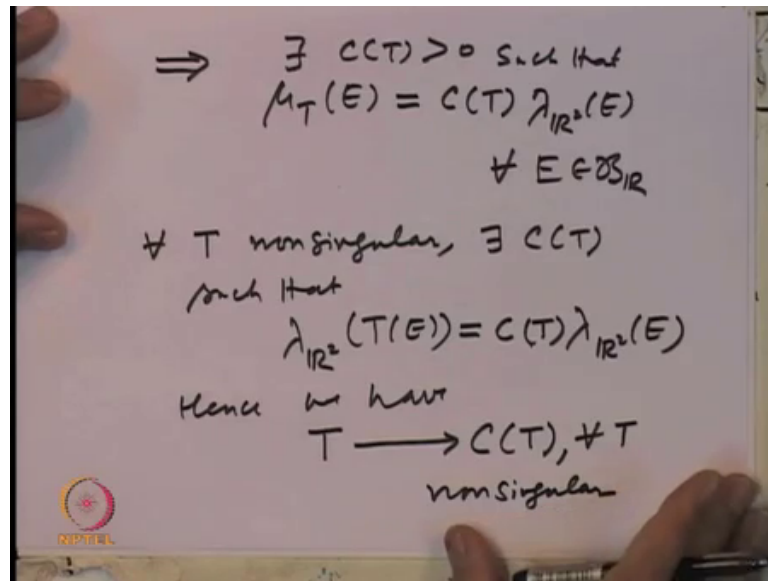 ⇒ ∃ C(T) > 0 such that
μ_T(E) = C(T) λ_{ℝ²}(E)
∀ E ∈ 𝓑_ℝ
∀ T nonsingular, ∃ C(T)
such that
λ_{ℝ²}(T(E)) = C(T) λ_{ℝ²}(E)
Hence we have
T ⟶ C(T), ∀ T
nonsingular
NPTEL